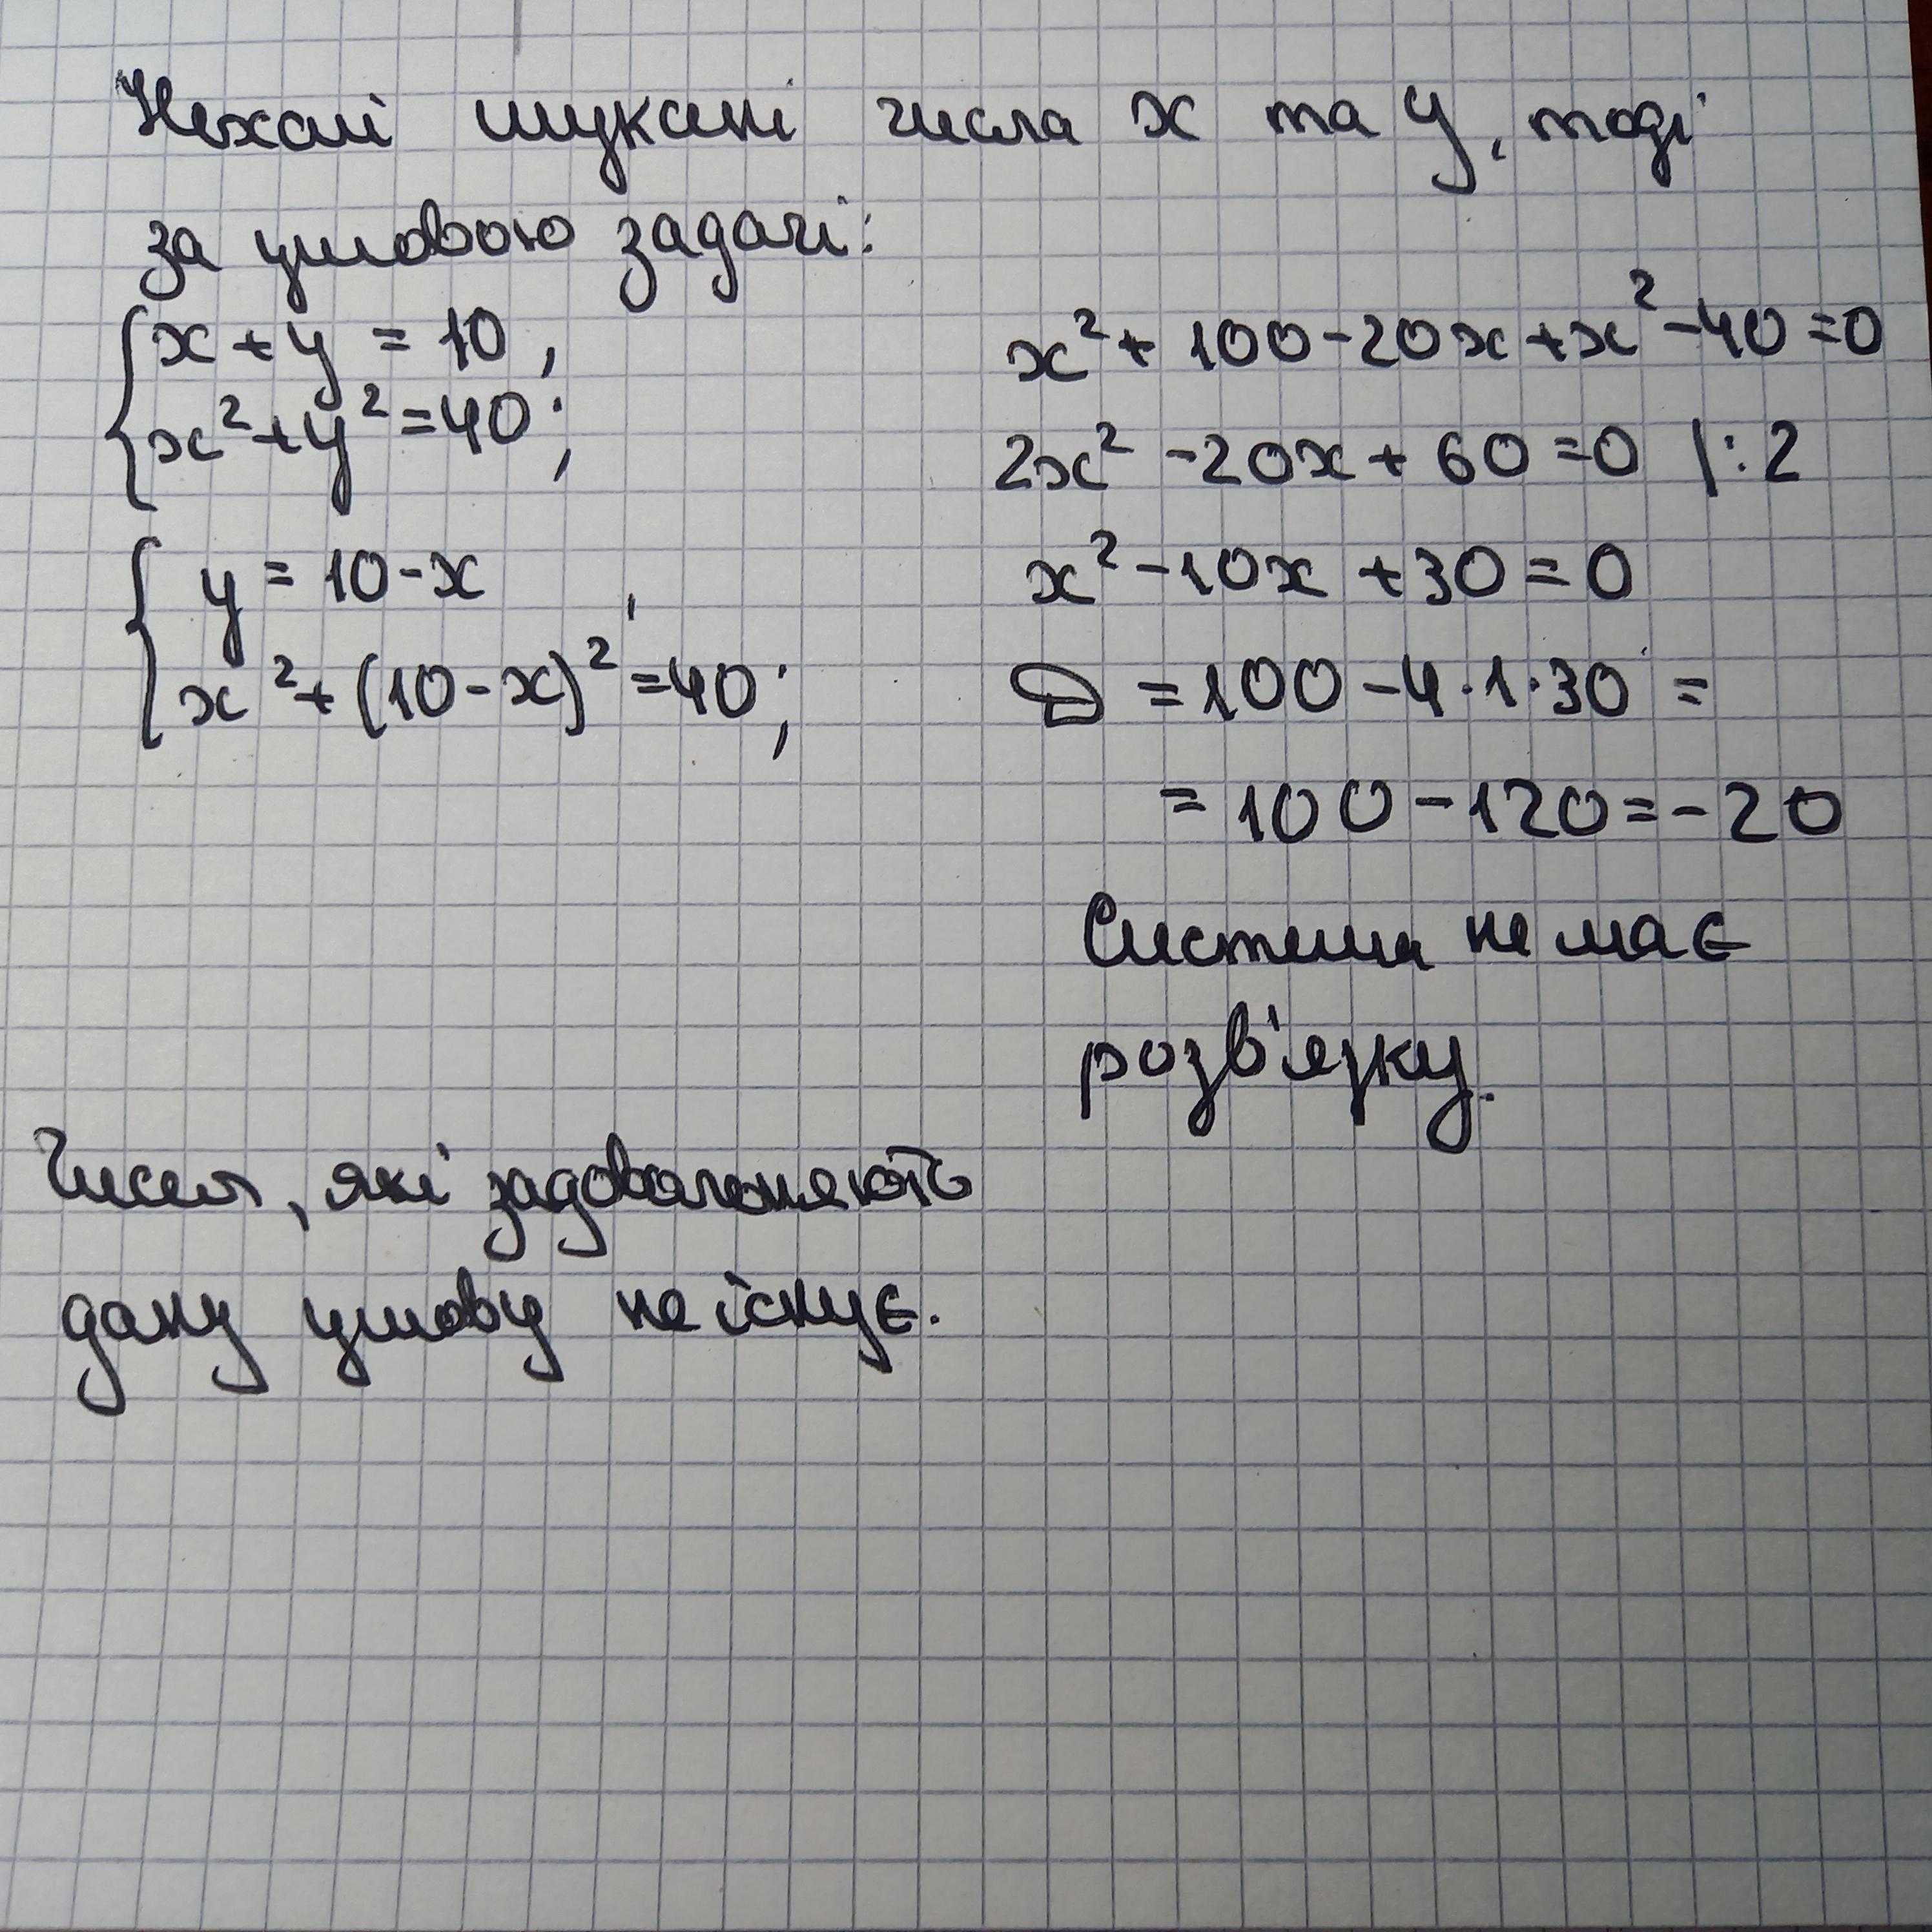 Нехай шукані числа x та y, тоді
за умовою задачі:
{ x + y = 10 ,
x² + y² = 40 ;
{ y = 10 - x ,
x² + (10 - x)² = 40 ;
x² + 100 - 20x + x² - 40 = 0
2x² - 20x + 60 = 0 | : 2
x² - 10x + 30 = 0
D = 100 - 4 · 1 · 30 =
= 100 - 120 = - 20
Система не має
розв'язку.
Чисел, які задовольняють
дану умову не існує.